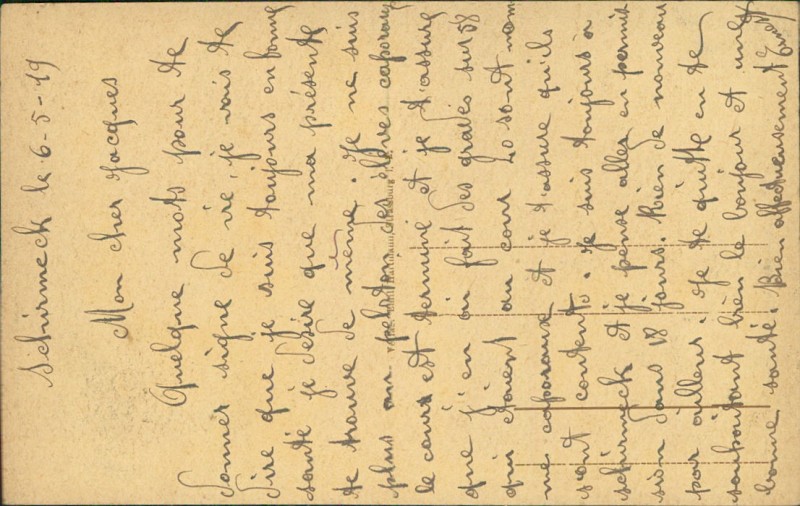 Schirmeck le 6-5-19
Mon cher Jacques
Quelque mots pour te
donner signe de vie, je vais te
dire que je suis toujours en bonne
santé je désire que ma présente
te trouve de même. Je ne suis
plus au peloton des élèves caporaux
le cours est terminé et je t'assure
que j'en ai fait des gradés sur 58
qui étaient au cour 40 sont nom
mé caporaux et je t'assure qu'ils
sont contents. Je suis toujours à
schirmeck et je pense aller en permis
sion dans 18 jours. Rien de nouveau
par ailleurs. Je te quitte en te
souhaitant bien le bonjour et une
bonne santé. Bien affectueusement